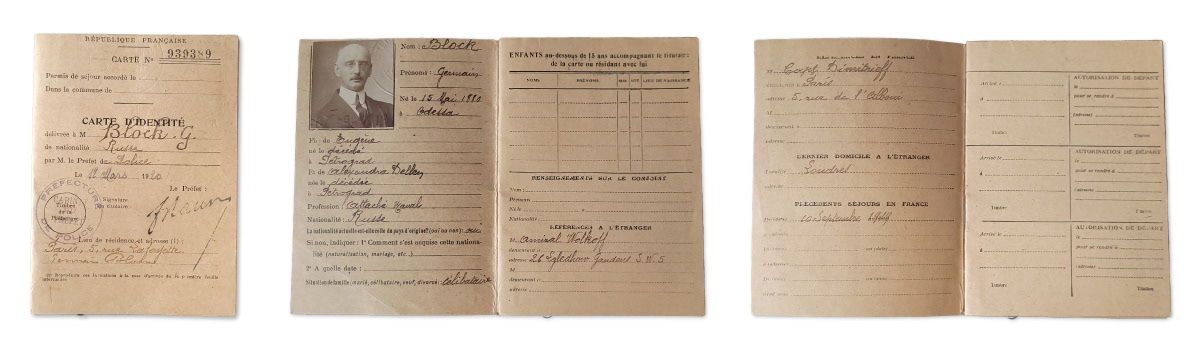 RÉPUBLIQUE FRANÇAISE
CARTE No 939389
Permis de séjour accordé le
Dans la commune de
CARTE D'IDENTITÉ
délivrée à M Block. G.
de nationalité Russe
par M. le Préfet de Police
Le Mars 1920
Le Préfet :
Signature
du titulaire
PRÉFECTURE
Timbre
de la
DE POLICE
Lieu de résidence et adresse (1) :
Paris, 5, rue Lafayette
Nom : Block
Prénoms : Germain
Né le 15 Mai 1880
à Odessa
Fils de Eugène
né le décédé
à Petrograd
Et de Alexandra
née le décédée
à Petrograd
Profession : Attaché Naval
Nationalité : Russe
La nationalité actuelle est-elle celle du pays d'origine? (oui ou non) : oui
Si non, indiquer : 1° Comment s'est acquise cette nationa-
lité (naturalisation, mariage, etc.)
2° A quelle date :
Situation de famille (marié, célibataire, veuf, divorcé) célibataire
ENFANTS au-dessous de 15 ans accompagnant le titulaire
de la carte ou résidant avec lui
NOMS PRÉNOMS AGE LIEU DE NAISSANCE
RENSEIGNEMENTS SUR LE CONJOINT
Nom :
Prénoms :
Né le à
Nationalité
RÉFÉRENCES A L'ÉTRANGER
M Amiral Wolkoff
demeurant à
adresse 26 Gardens S.W. 5
M
demeurant à
adresse
M Capt. Dimitrieff
demeurant à Paris
adresse 5, rue de l'
M
demeurant à
adresse
DERNIER DOMICILE A L'ÉTRANGER
Localité Londres
PRÉCÉDENTS SÉJOURS EN FRANCE
10 Septembre
Arrivé le
à
Timbre
AUTORISATION DE DÉPART
le
pour se rendre à
(adresse)
Timbre
Arrivé le
à
Timbre
AUTORISATION DE DÉPART
le
pour se rendre à
(adresse)
Timbre
Arrivé le
à
Timbre
AUTORISATION DE DÉPART
le
pour se rendre à
(adresse)
Timbre